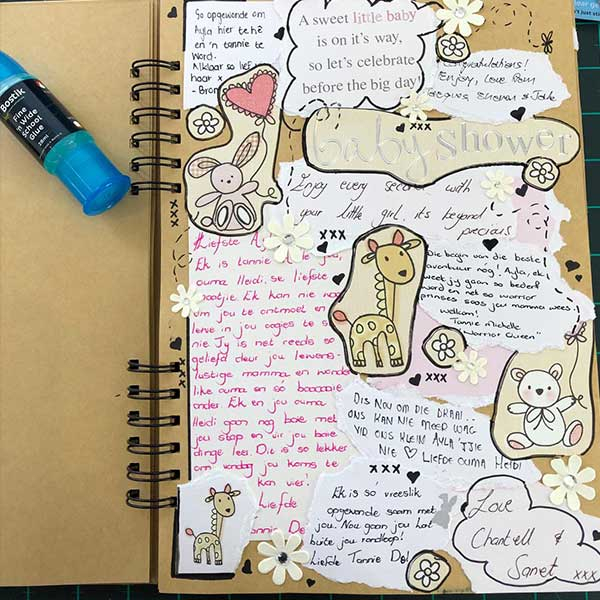 So opgewonde om
Ayla hier te hê
en 'n tannie te
word.
Alklaar so lief
haar x
- Bron
A sweet little baby
is on it's way,
so let's celebrate
before the big day!
Congratulations!
Enjoy, love from
& Jake
xxx
baby shower
Enjoy every second with
your little girl, it's beyond
precious
xxx
xxx
Liefste Ay
Ek is tannie jou
ouma Heidi se liefste
Ek kan nie
om jou te ontmoet en
liewe in jou oogies te s
nie Jy is net reeds so
geliefd deur jou lewens-
lustige mamma en wonder
like ouma en só baaaaie
ander Ek en jou ouma
Heidi gaan nog baie met
jou stap en vir jou baie
dinge leer. Dit is so lekker
om vandag jou koms te
kan vier!
Liefde
Tannie De
Die begin van die beste
avontuur nog! Ayla, ek
weet jy gaan so bederf
word en net so warrior
prinses soos jou mamma wees.
Welkom!
Tannie Michelle
"Warrior Queen"
xxx
xxx
DIS NOU OM DIE DRAAI..
ONS KAN NIE MEER WAG
VIR ONS KLEIN AYLA TJIE
NIE ♡ LIEFDE OUMA HEIDI
xxx
Ek is só vreeslik
opgewonde saam met
jou. Nou gaan jou hart
buite jou rondloop!
Liefde Tannie De
Love
Chantell &
Sanet xxx
Bostik
Fine
n Wide
School
Glue